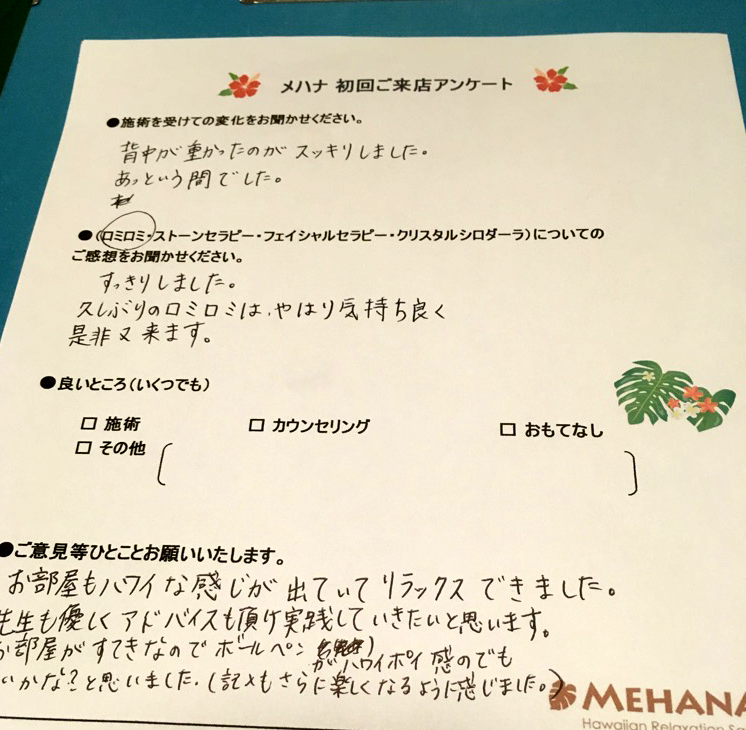 メハナ 初回ご来店アンケート
●施術を受けての変化をお聞かせください。
背中が重かったのが スッキリしました。
あっという間でした。
●(ロミロミ・ストーンセラピー・フェイシャルセラピー・クリスタルシロダーラ)についての
ご感想をお聞かせください。
すっきりしました。
久しぶりのロミロミは、やはり気持ち良く
是非又来ます。
●良いところ(いくつでも)
□ 施術 □ カウンセリング □ おもてなし
□ その他
●ご意見等ひとことお願いいたします。
お部屋もハワイな感じが出ていてリラックスできました。
先生も優しくアドバイスも頂け実践していきたいと思います。
お部屋がすてきなのでボールペン
がハワイポイ感のでも
いかな?と思いました。(記入もさらに楽しくなるように感じました。)
MEHANA
Hawaiian Relaxation